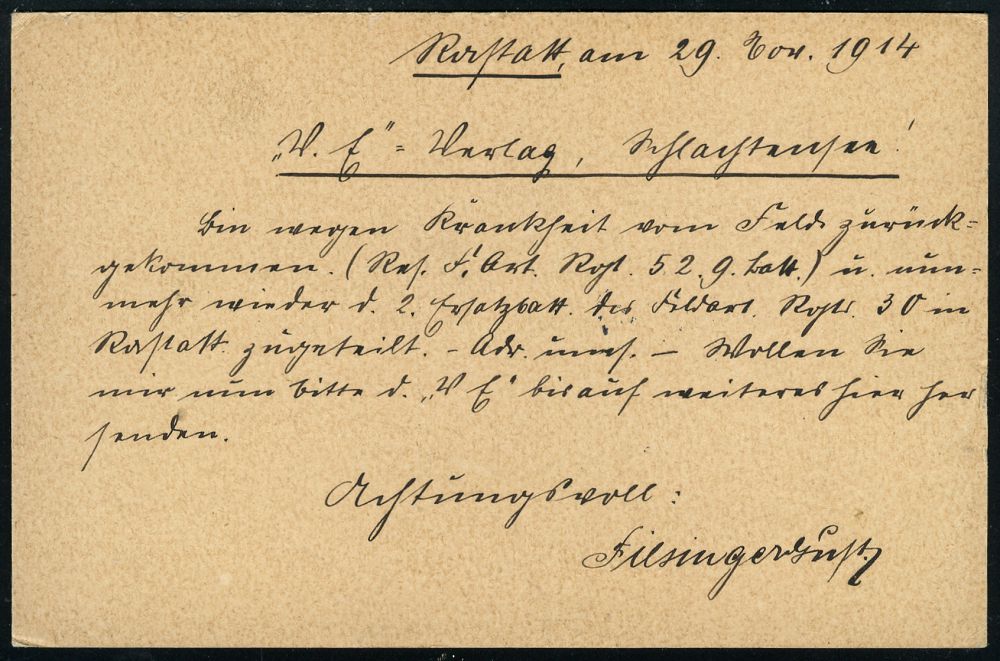 Rastatt, am 29. Nov. 1914
„V. E" = Verlag, Schlachtensee!
Bin wegen Krankheit vom Felde zurück=
gekommen. (Res. F. Art. Rgt. 52. 9. Batt.) u. nun=
mehr wieder d. 2. Ersatzbatt. des Feldart. Rgts. 30 in
Rastatt. zugeteilt. – Adr. ums. – Wollen Sie
mir nun bitte d. „V E" bis auf weiteres hier her
senden.
Achtungsvoll:
Filsinger Gust.